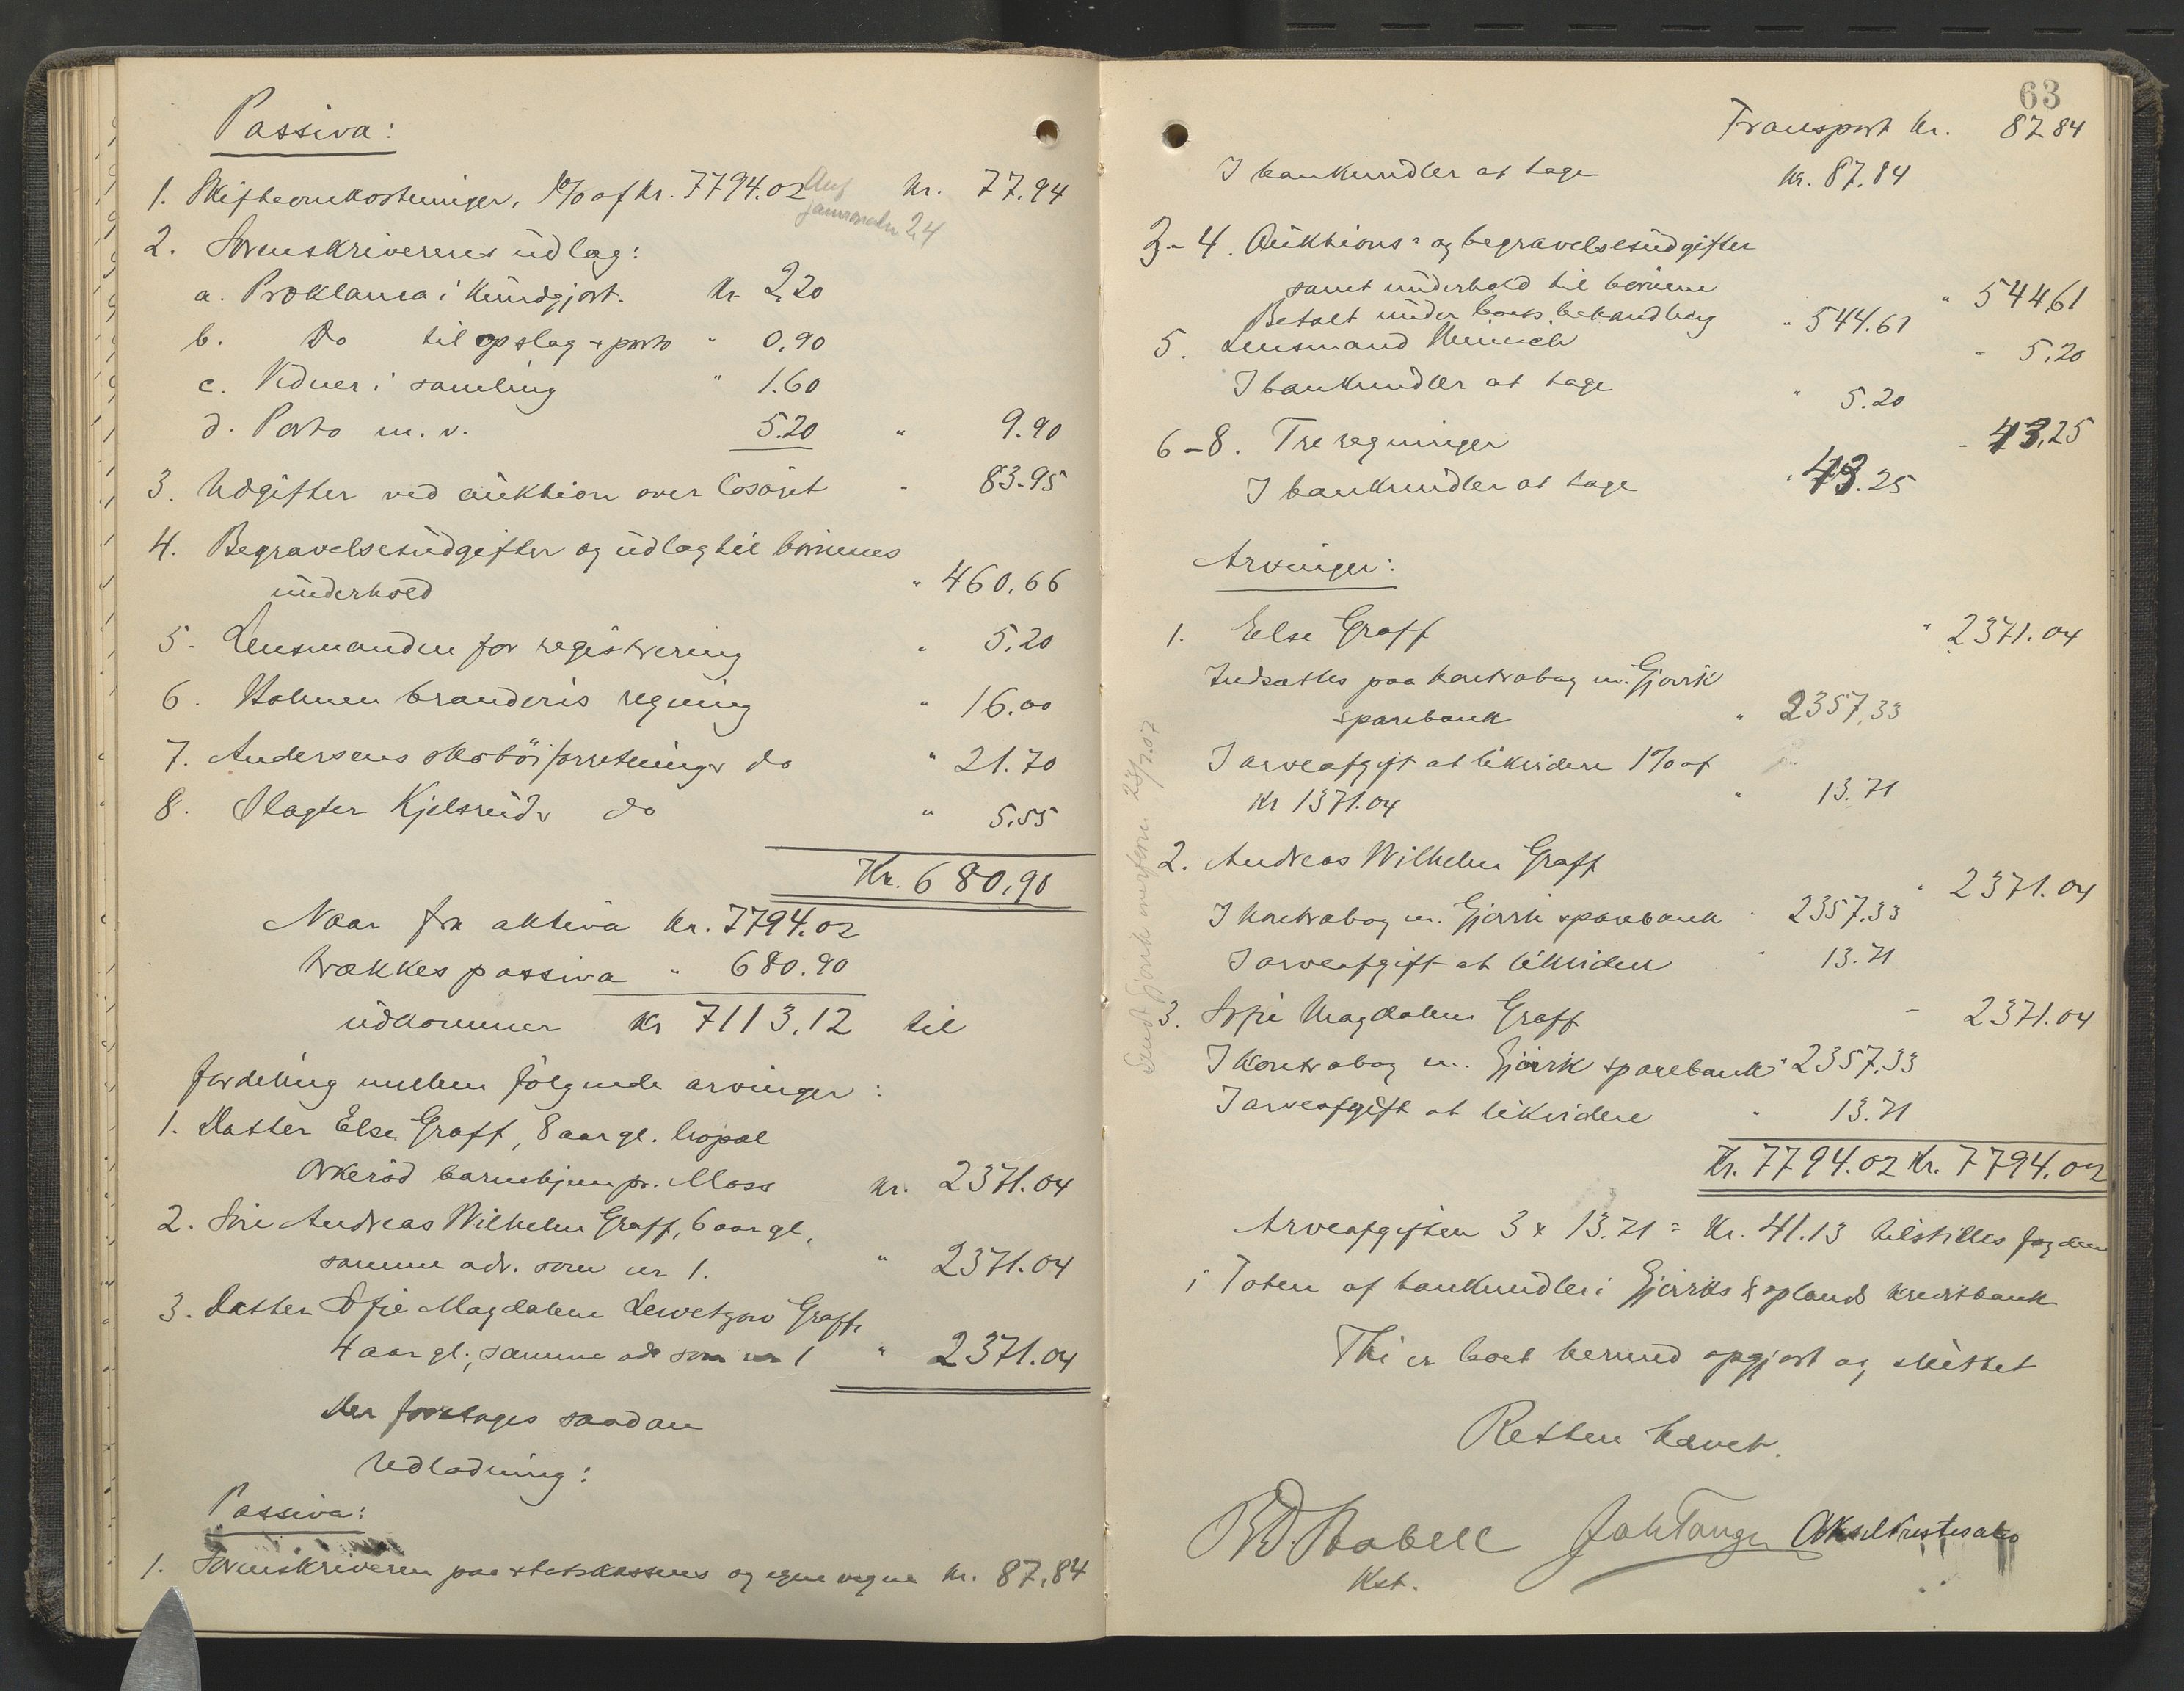 Passiva:
1. Skifteomkostninger, 1% af kr. 7794.02 kr. 77.94
2. Sorenskriverens udlæg:
a. Proklama i Kundgjort. kr 2,20
b. Do til opslag + porto " 0,90
c. Vidner i samling " 1.60
d. Porto m. v. 5.20 " 9.90
3. Udgifter ved auktion over løsøret " 83.95
4. Begravelsesudgifter og udlæg til børnenes
underhold " 460,66
5. Lensmanden for registrering " 5,20
6. Holmen branderis regning " 16.00
7. Andersens skotøiforretnings do " 21.70
8. Slagter Kjelsruds do " 5,55
Kr. 680,90
Naar fra aktiva kr. 7794.02
trækkes passiva " 680.90
udkommer kr 7113,12 til
fordeling mellem følgende arvinger:
1. Datter Else Graff, 8 aar gl.
Orkerød barnehjem pr. Moss kr. 2371.04
2. Søn Andreas Wilhelm Graff, 6 aar gl,
samme adr. som nr 1. " 2371.04
3. Datter Sofie Magdalene Graff,
4 aar gl., samme adr som nr 1 " 2371.04
Der foretages saadan
Udlodning:
Passiva:
1. Sorenskriveren paa statskassens og egne vegne kr. 87,84
63
Transport kr. 87 84
I bankmidler at tage kr. 87.84
3-4. Auktions- og begravelsesudgifter
samt underhold til børnene " 544,61
Betalt under boets behandling " 544.61
5. Lensmand " 5,20
I bankmidler at tage " 5.20
6-8. Tre regninger " 43,25
I bankmidler at tage " 43.25
Arvinger:
1. Else Graff " 2371.04
Indsættes paa kontrabog m. Gjøvik
sparebank " 2357,33
I arveafgift at likvidere 1% af
kr 1371.04 " 13.71
2. Andreas Wilhelm Graff " 2371.04
I kontrabog m. Gjøvik sparebank " 2357.33
I arveafgift at likvidere " 13.71
3. Sofie Magdalene Graff " 2371.04
I kontrabog m. Gjøvik sparebank " 2357.33
I arveafgift at likvidere " 13.71
Kr. 7794.02 Kr. 7794.02
Arveafgiften 3 x 13.71 = kr. 41.13 tilstilles fogden
i Toten af bankmidler i Gjøviks & oplands kreditbank
Thi er boet hermed opgjort og sluttet
Retten hævet.
Kst.